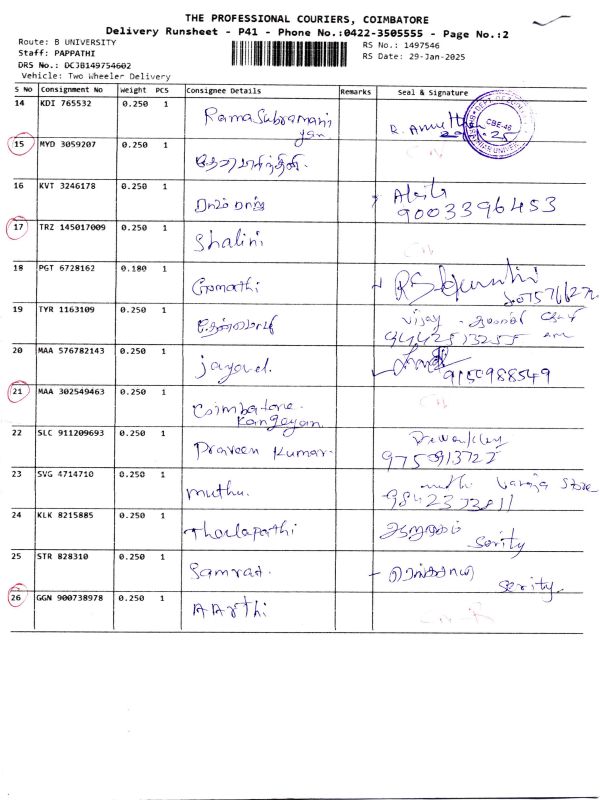 THE PROFESSIONAL COURIERS, COIMBATORE
Delivery Runsheet - P41 - Phone No.:0422-3505555 - Page No.:2
Route: B UNIVERSITY
RS No.: 1497546
Staff: PAPPATHI
RS Date: 29-Jan-2025
DRS No.: DCJB149754602
Vehicle: Two Wheeler Delivery
S No Consignment No Weight PCS Consignee Details Remarks Seal & Signature
14 KDI 765532 0.250 1 RamaSubramani
yan
CBE-46
15 MYD 3059207 0.250 1
16 KVT 3246178 0.250 1 ராம் ராஜ்
9003396453
17 TRZ 145017009 0.250 1 Shalini
18 PGT 6728162 0.180 1 Gomathi
19 TYR 1163109 0.250 1 Vijay
9442513255
20 MAA 576782143 0.250 1 jayavel.
9150988549
21 MAA 302549463 0.250 1 Coimbatore
Kangayan.
22 SLC 911209693 0.250 1 Praveen Kumar.
23 SVG 4714710 0.250 1 muthu. Store
24 KLK 8215885 0.250 1 Thalapathi
Serity
25 STR 828310 0.250 1 Samrat.
Serity
26 GGN 900738978 0.250 1 AArthi